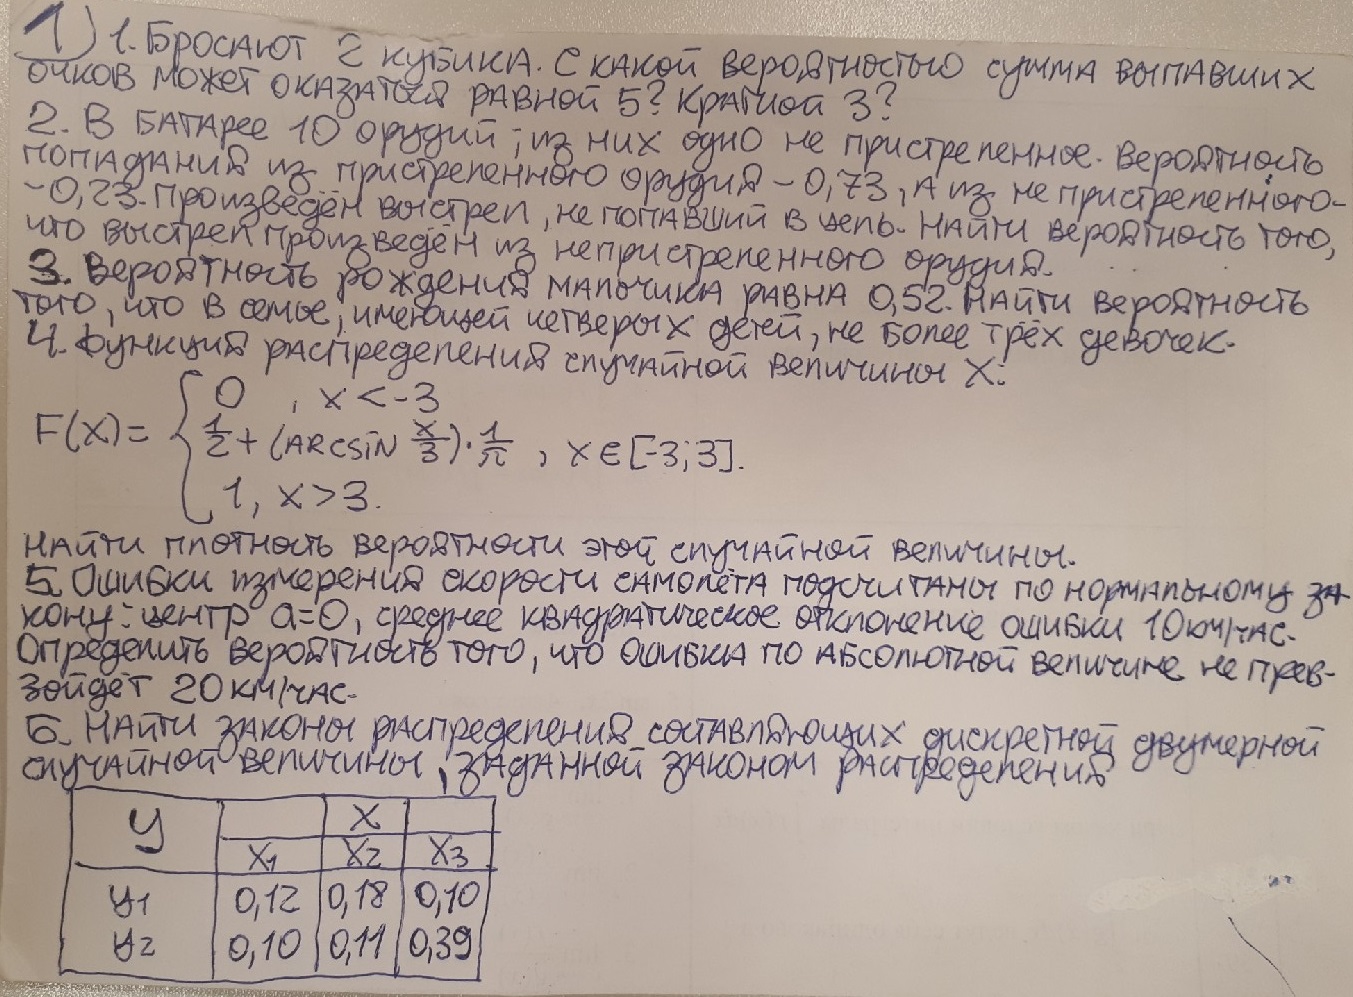 1) 1. Бросают 2 кубика. С какой вероятностью сумма выпавших
очков может оказаться равной 5? Кратной 3?
2. В батарее 10 орудий; из них одно не пристреленное. Вероятность
попадания из пристреленного орудия - 0,73, а из не пристреленного-
-0,23. Произведён выстрел, не попавший в цель. Найти вероятность того,
что выстрел произведён из непристреленного орудия.
3. Вероятность рождения мальчика равна 0,52. Найти вероятность
того, что в семье, имеющей четверых детей, не более трёх девочек.
4. Функция распределения случайной величины X:
F(x) = { 0 , x < -3
1/2 + (arcsin x/3) · 1/π , x ∈ [-3; 3].
1, x > 3.
Найти плотность вероятности этой случайной величины.
5. Ошибки измерения скорости самолёта подсчитаны по нормальному за
кону: центр a=0, среднее квадратическое отклонение ошибки 10км/час.
Определить вероятность того, что ошибка по абсолютной величине не прев-
зойдёт 20 км/час.
6. Найти законы распределения составляющих дискретной двумерной
случайной величины, заданной законом распределения
y X
x1 x2 x3
y1 0,12 0,18 0,10
y2 0,10 0,11 0,39